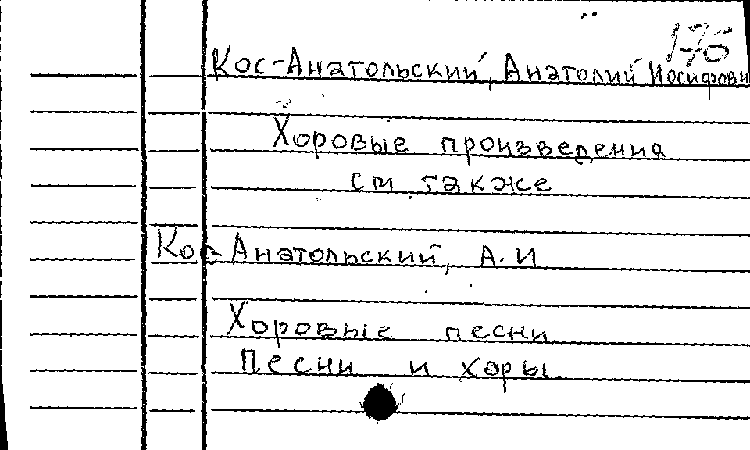 176
Кос-Анатольский, Анатолий Иосифович
Хоровые произведения
см. также
Кос-Анатольский, А.И
Хоровые песни
Песни и хоры